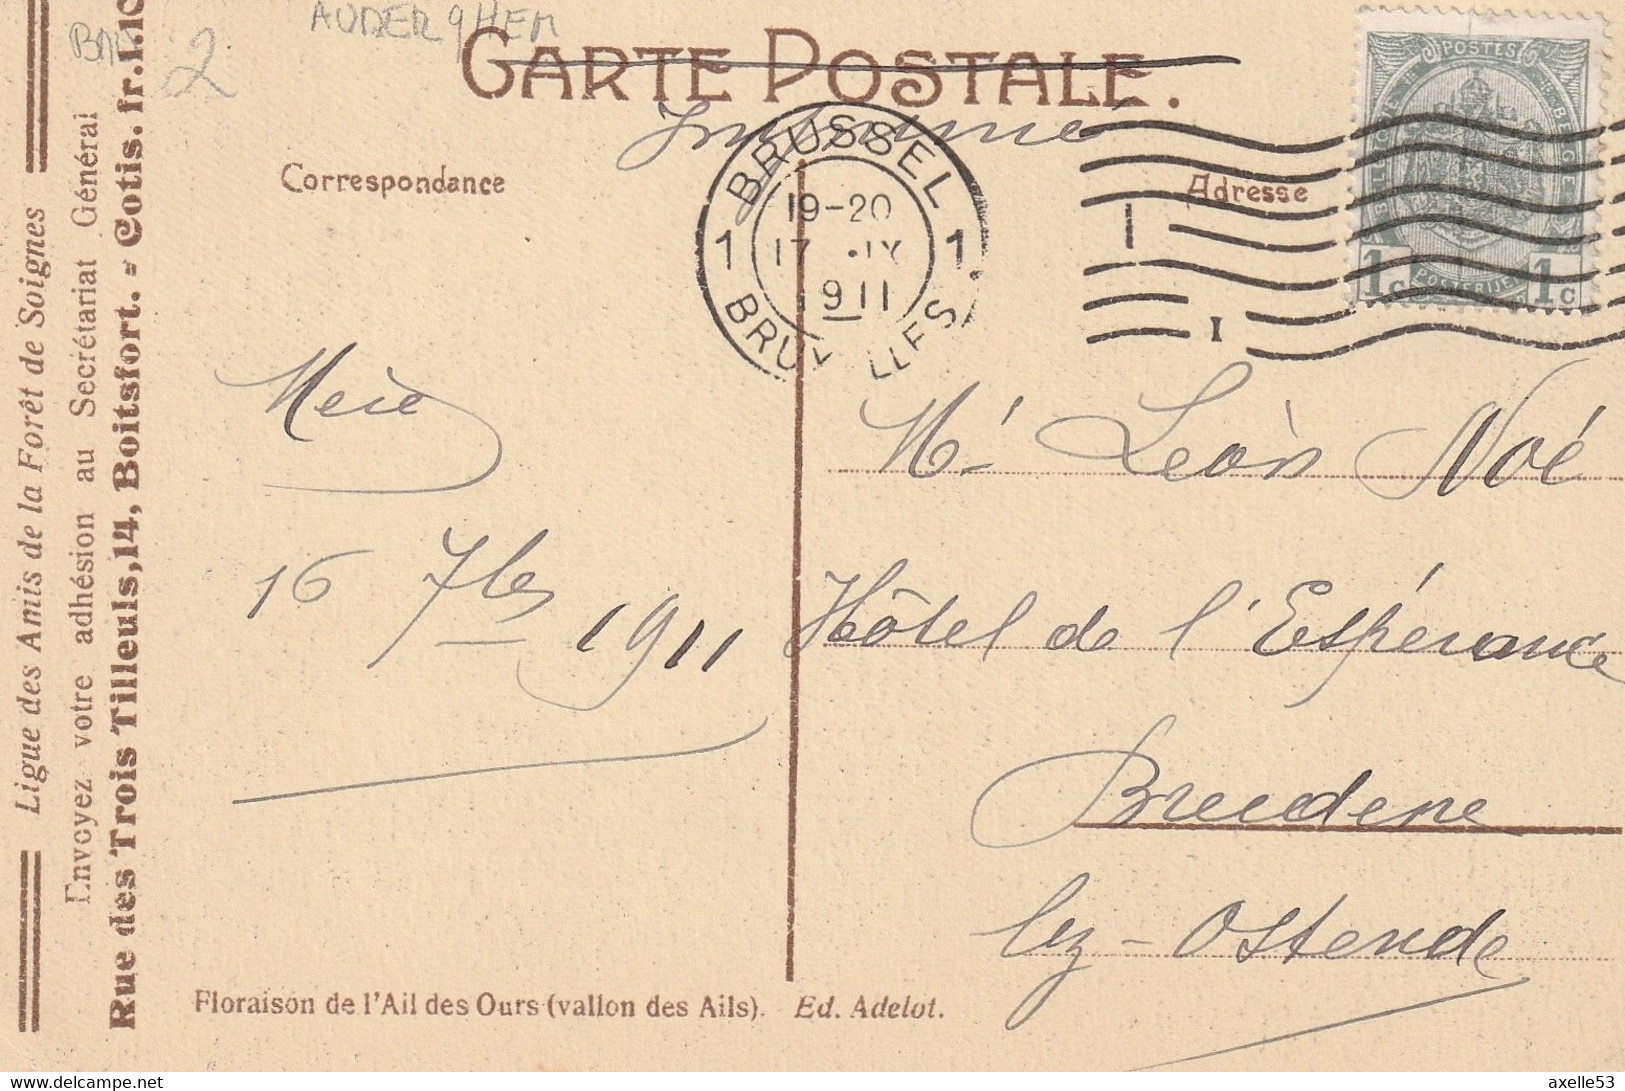 AUDERGHEM
2
CARTE POSTALE.
Imprimé
Correspondance
Adresse
BRUSSEL
19-20
1 17 .IX 1
1911
BRUXELLES
POSTES
BELGIQUE
BELGIE
1c POSTERIJEN 1c
I
Mère
16 7bre 1911
Mr Léon Noé
Hôtel de l'Espérance
Breedene
lez-Ostende
Floraison de l'Ail des Ours (vallon des Ails). Ed. Adelot.
Ligue des Amis de la Forêt de Soignes
Envoyez votre adhésion au Secrétariat Général
Rue des Trois Tilleuls, 14, Boitsfort. - Cotis. fr. 1.10
axelle53